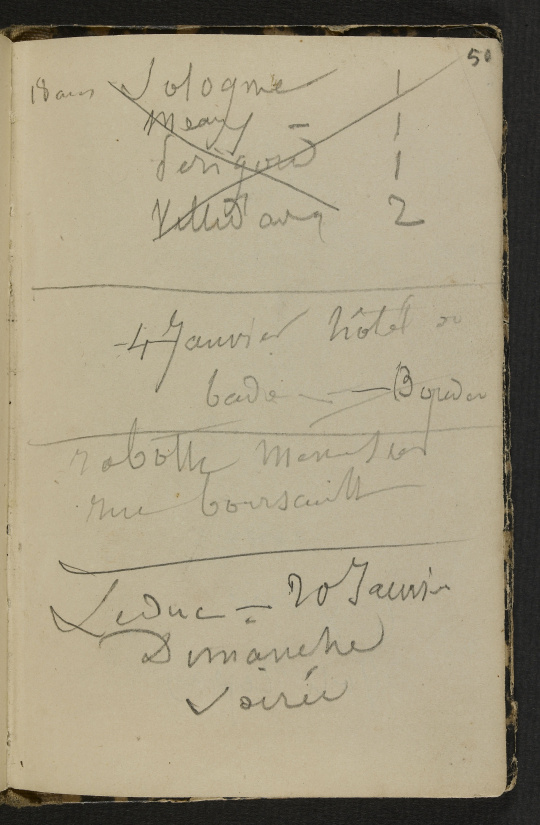 50
18 ans Sologne 1
Meaux 1
Périgord 1
Ville d'avray 2
4 Janvier hôtel de
bade — Boredon
rabotte Menuisier
rue boursault
Leduc — 20 Janvier
Dimanche
soirée